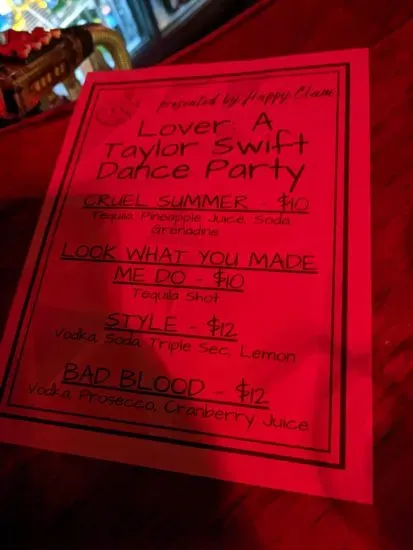 presented by: Happy Clam
Lover: A
Taylor Swift
Dance Party
CRUEL SUMMER - $10
Tequila, Pineapple Juice, Soda,
Grenadine
LOOK WHAT YOU MADE
ME DO - $10
Tequila Shot
STYLE - $12
Vodka, Soda, Triple Sec, Lemon
BAD BLOOD - $12
Vodka, Prosecco, Cranberry Juice